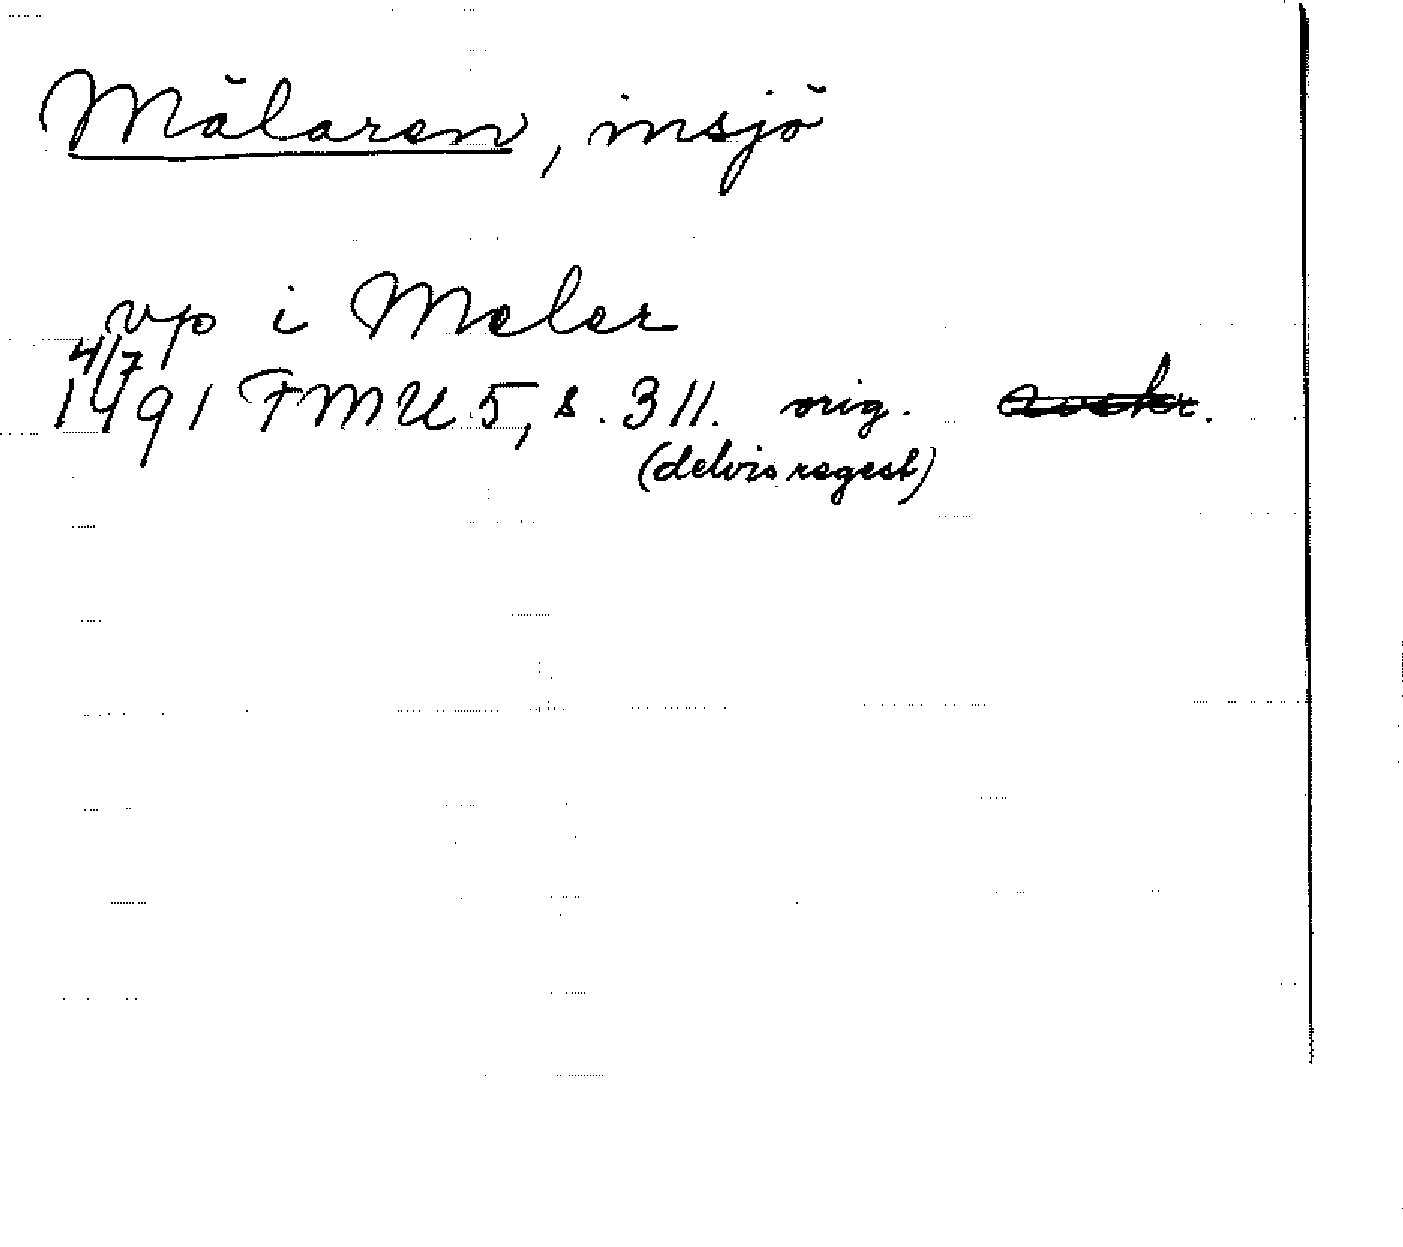 Mälaren, insjö
vp i Meler
4/7
1491 FMU 5, s. 311. orig.
(delvis regest)